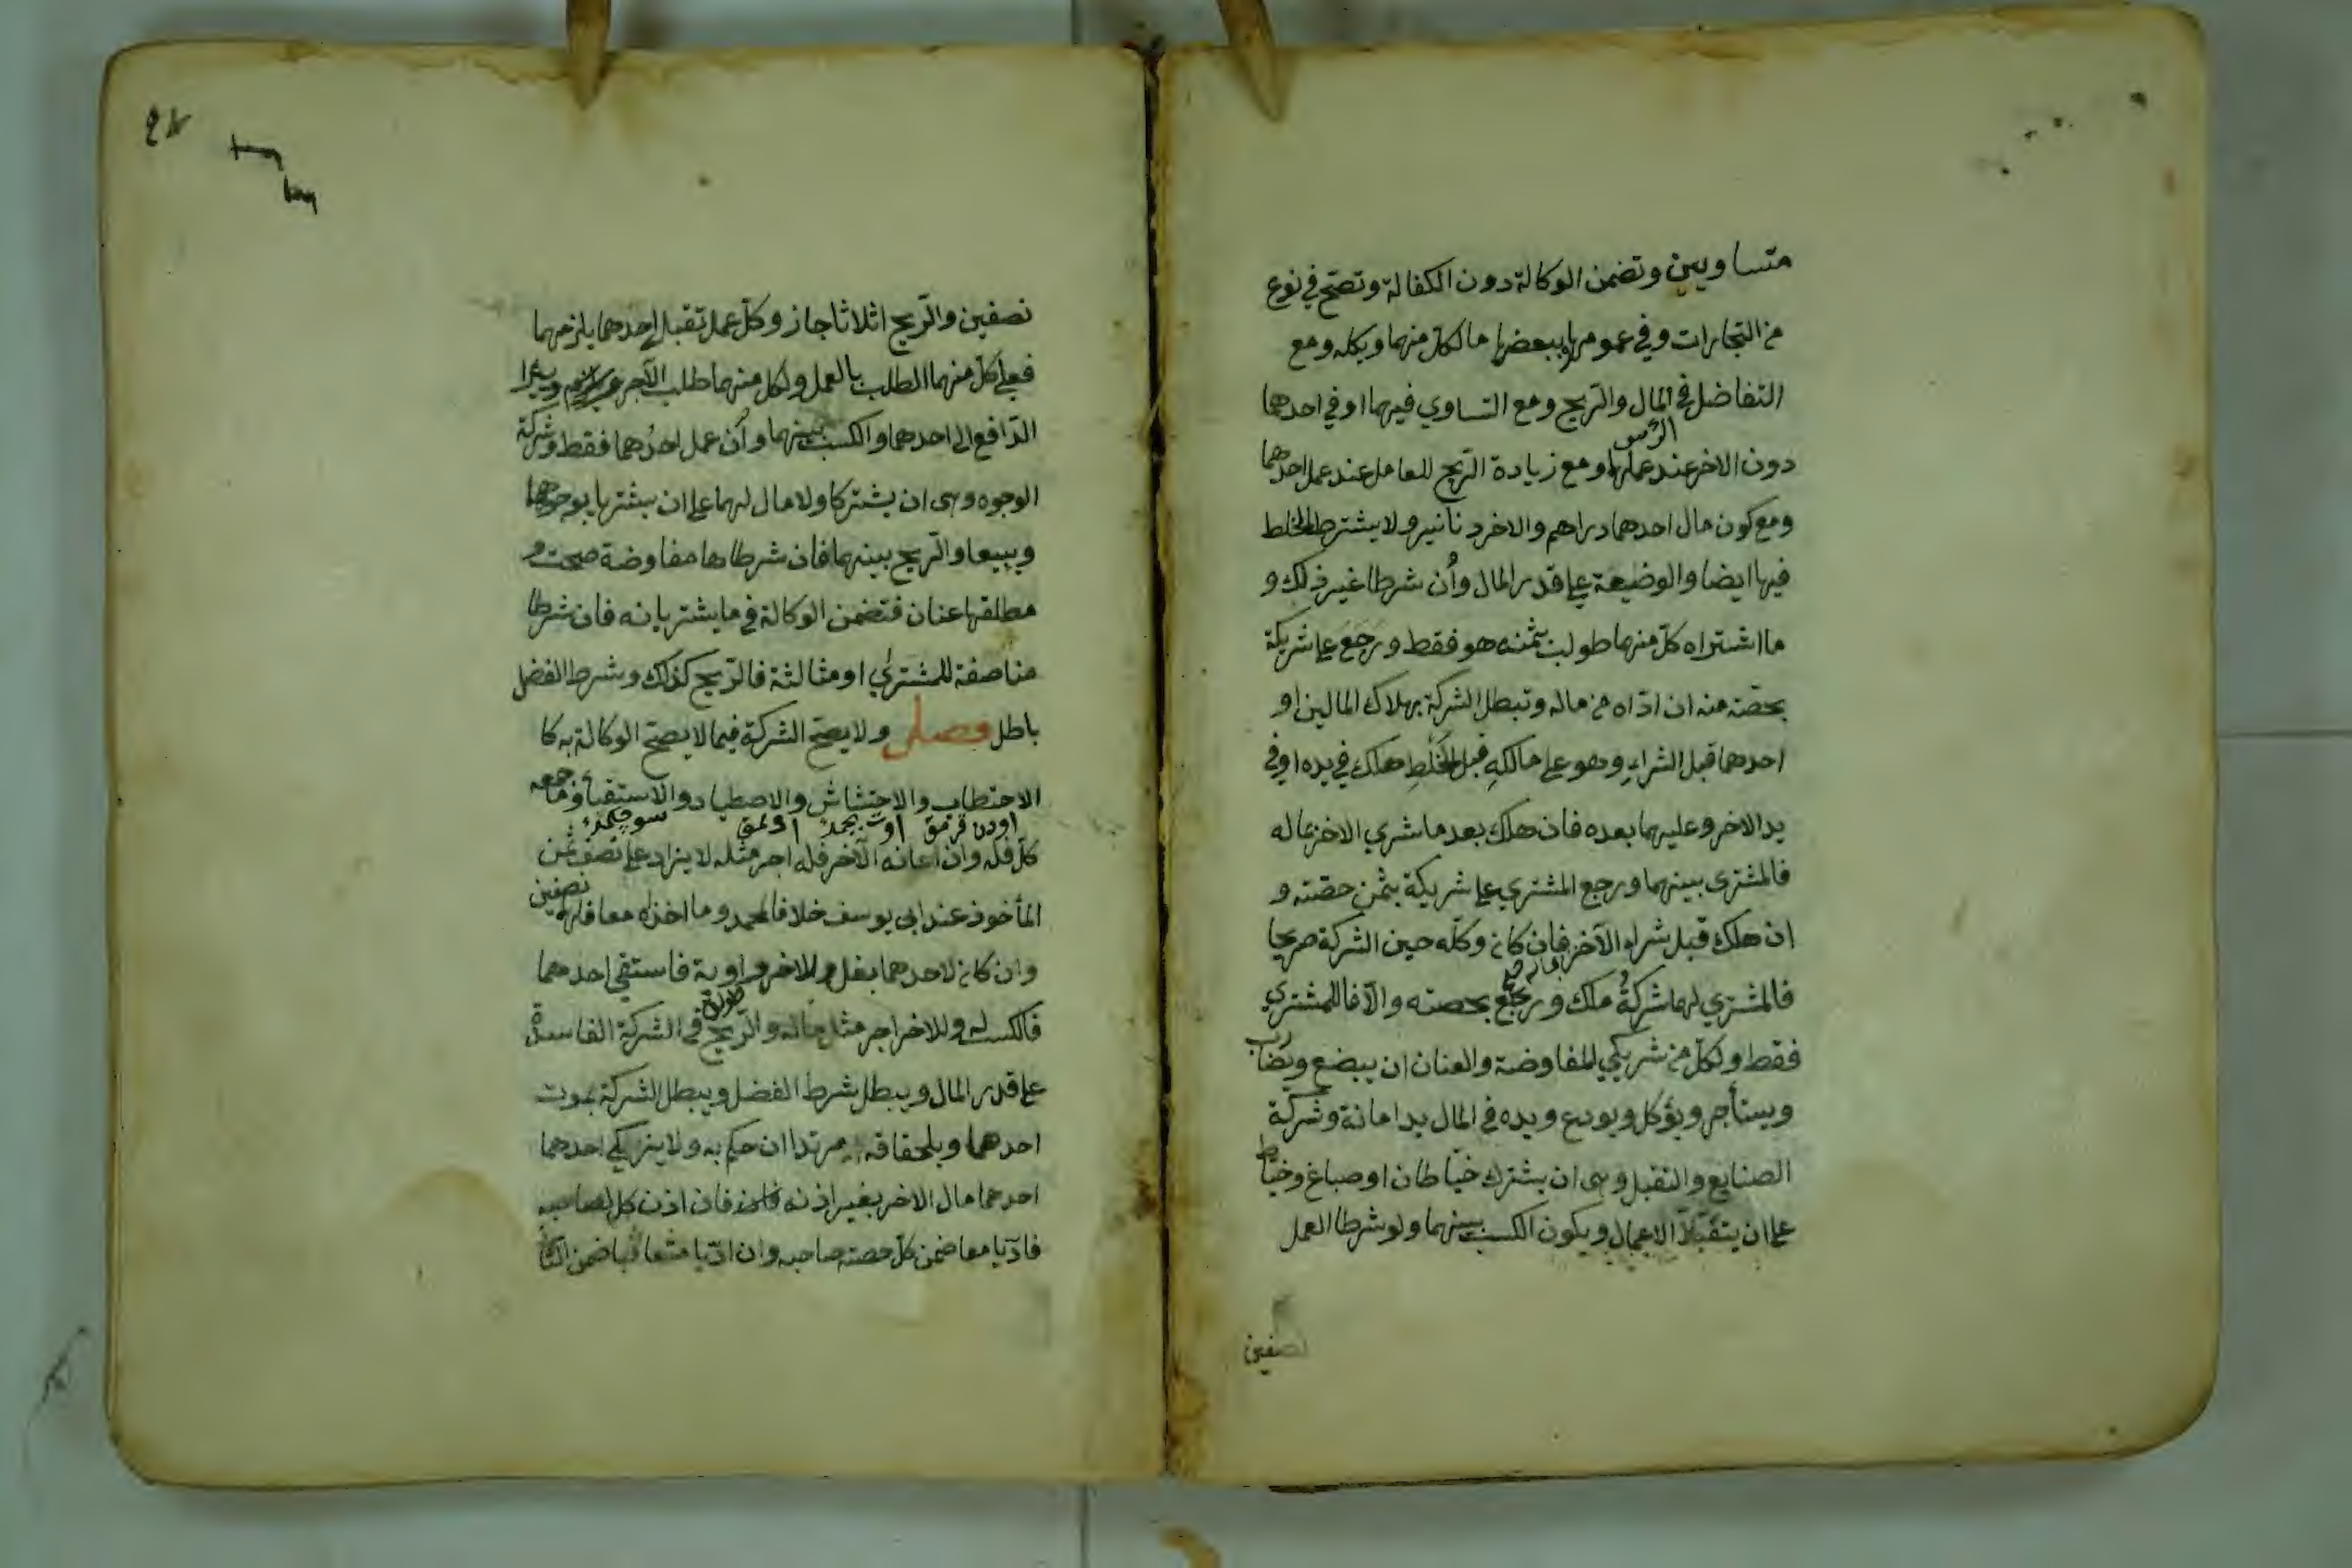 متساويين وتضمن الوكالة دون الكفالة وتصح في نوع
من التجارات وفي عمومها وببعض مال كل منهما وبكله ومع
التفاضل في المال والربح ومع التساوي فيهما او في احدهما
دون الاخر عند عملهما ومع زيادة الربح للعامل عند عمل احدهما
ومع كون مال احدهما دراهم والاخر دنانير ولا يشترط الخلط
فيها ايضا والوضيعة على قدر المال وأن شرطا غير ذلك و
ما اشتراه كل منهما طولب بثمنه هو فقط ورجع على شريكة
بحصّته منه ان ادّاه من ماله وتبطل الشركة بهلاك المالين او
احدهما قبل الشراء وهو على مالكه قبل الخلط هلك في يده او في
يد الاخر وعليهما بعده فان هلك بعد ما شري الاخر بماله
فالمشترى بينهما ورجع المشتري على شريكة بثمن حصّته و
ان هلك قبل شراء الآخر فان كان وكله حين الشركة صريحا
فالمشتري لهما شركة ملك ورجع بحصته والّا فللمشتري
فقط ولكلّ من شريكي المفاوضة والعنان ان يبضع ويضارب
ويستأجر ويؤكل ويودع ويده في المال يد امانة وشركة
الصنايع والتقبل وهي ان يشترك خيّاطان او صباغ وخيّاط
على ان يتقبّلا الاعمال ويكون الكسب بينهما ولو شرطا العمل
نصفين
نصفين والرّبح اثلاثا جاز وكلّ عمل تقبل احدهما يلزمهما
فعلى كلّ منهما الطلب بالعمل ولكل منهما طلب الآجر ويبرا
الدّافع الى احدهما والكسب بينهما وأن عمل احدهما فقط وشركة
الوجوه وهى ان يشتركا ولا مال لهما على ان يشتريا بوجوههما
ويبيعا والرّبح بينهما فان شرطاها مفاوضة صحت و
مطلقها عنان فتضمن الوكالة في ما يشتريانه فان شرطا
مناصفة للمشتري او مثالثة فالرّبح كذلك وشرط الفضل
باطل فصل ولا يصحّ الشركة فيما لا يصحّ الوكالة به كا
الاحتطاب والاحتشاش والاصطياد والاستقاء وما جمعه
كلّ فله وان اعانه الآخر فله اجر مثله لا يزاد على نصف ثمن
المأخوذ عند ابى يوسف خلافا لمحمد وما اخذاه معا فلهما نصفين
وان كان لاحدهما بغل وللاخر راوية فاستقي احدهما
فالكسب له وللاخر اجر مثل ماله والرّبح في الشركة الفاسدة
على قدر المال ويبطل شرط الفضل ويبطل الشركة بموت
احدهما وبلحاقه مرتدا ان حكم به ولا يزكي احدهما
احدهما مال الاخر بغير اذنه فان اذن كل لصاحبه
فادّيا معا ضمن كلّ حصة صاحبه وان ادّيا متعاقبا ضمن الثا